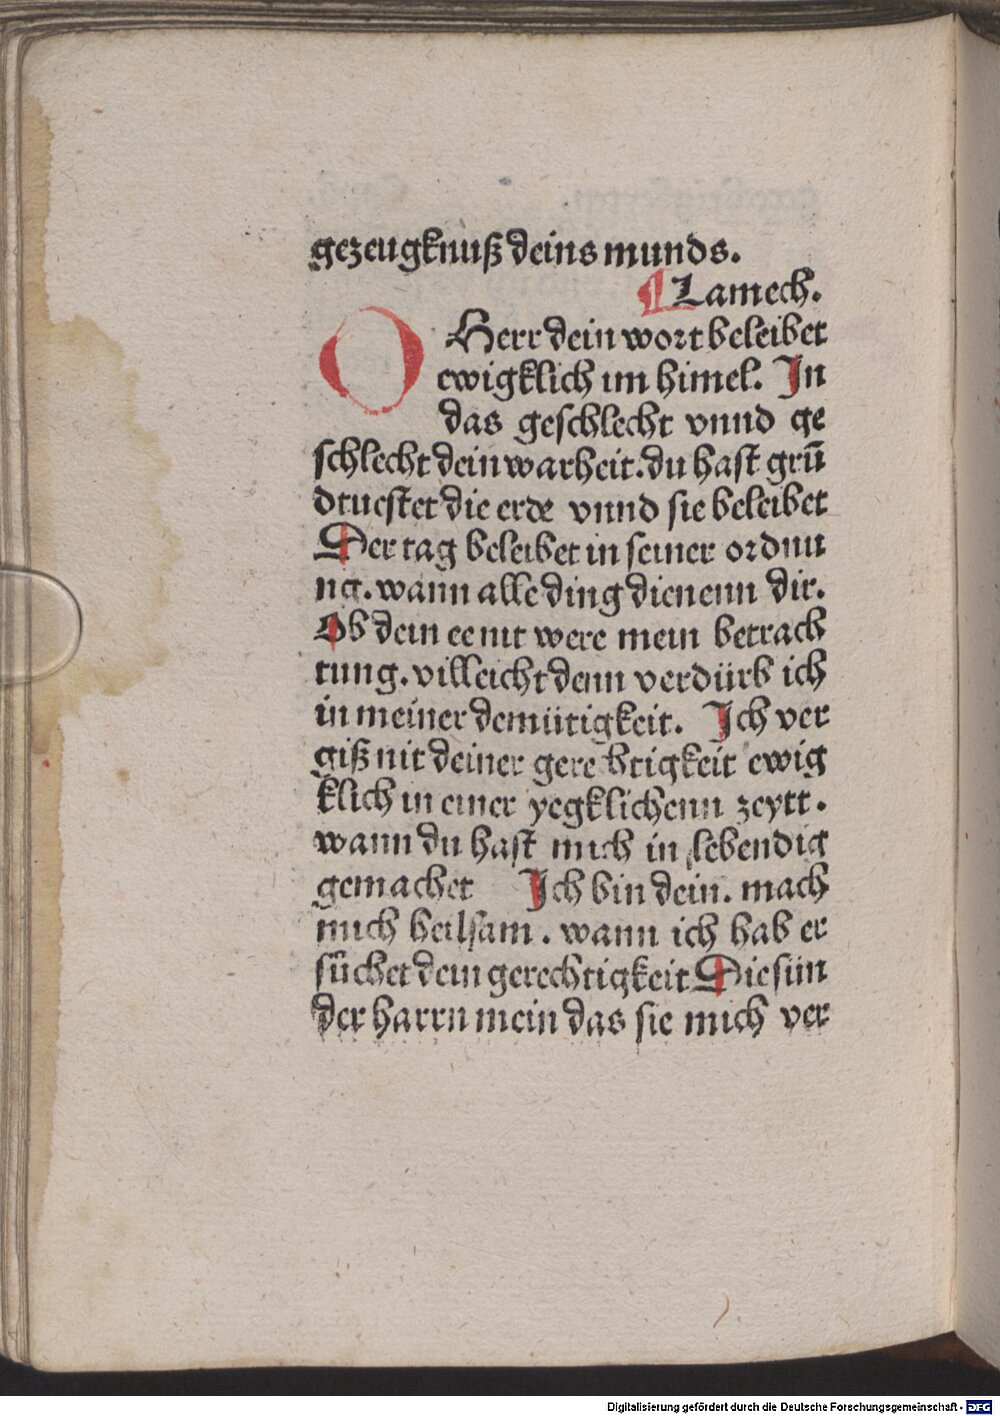 gezeugknuß deins munds.
¶ Lamech.
O Herr dein wort beleibet
ewigklich im himel. In
das geschlecht vnnd ge
schlecht dein warheit. du hast grū
dtuestet die erde vnnd sie beleibet
Der tag beleibet in seiner ordnu
ng. wann alle ding dienenn dir.
Ob dein ee nit were mein betrach
tung. villeicht denn verdürb ich
in meiner demütigkeit. Ich ver
giß nit deiner gerechtigkeit ewig
klich in einer yegklichenn zeytt.
wann du hast mich in lebendig
gemachet Ich bin dein. mach
mich heilsam. wann ich hab er
sůchet dein gerechtigkeit Die sün
der harrn mein das sie mich ver
Digitalisierung gefördert durch die Deutsche Forschungsgemeinschaft - DFG